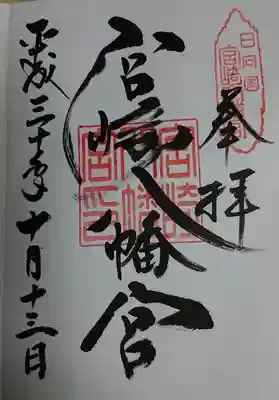 奉拝
宮崎八幡宮
平成三十年十月十三日
日向国
宮崎
宮崎
八幡
宮印